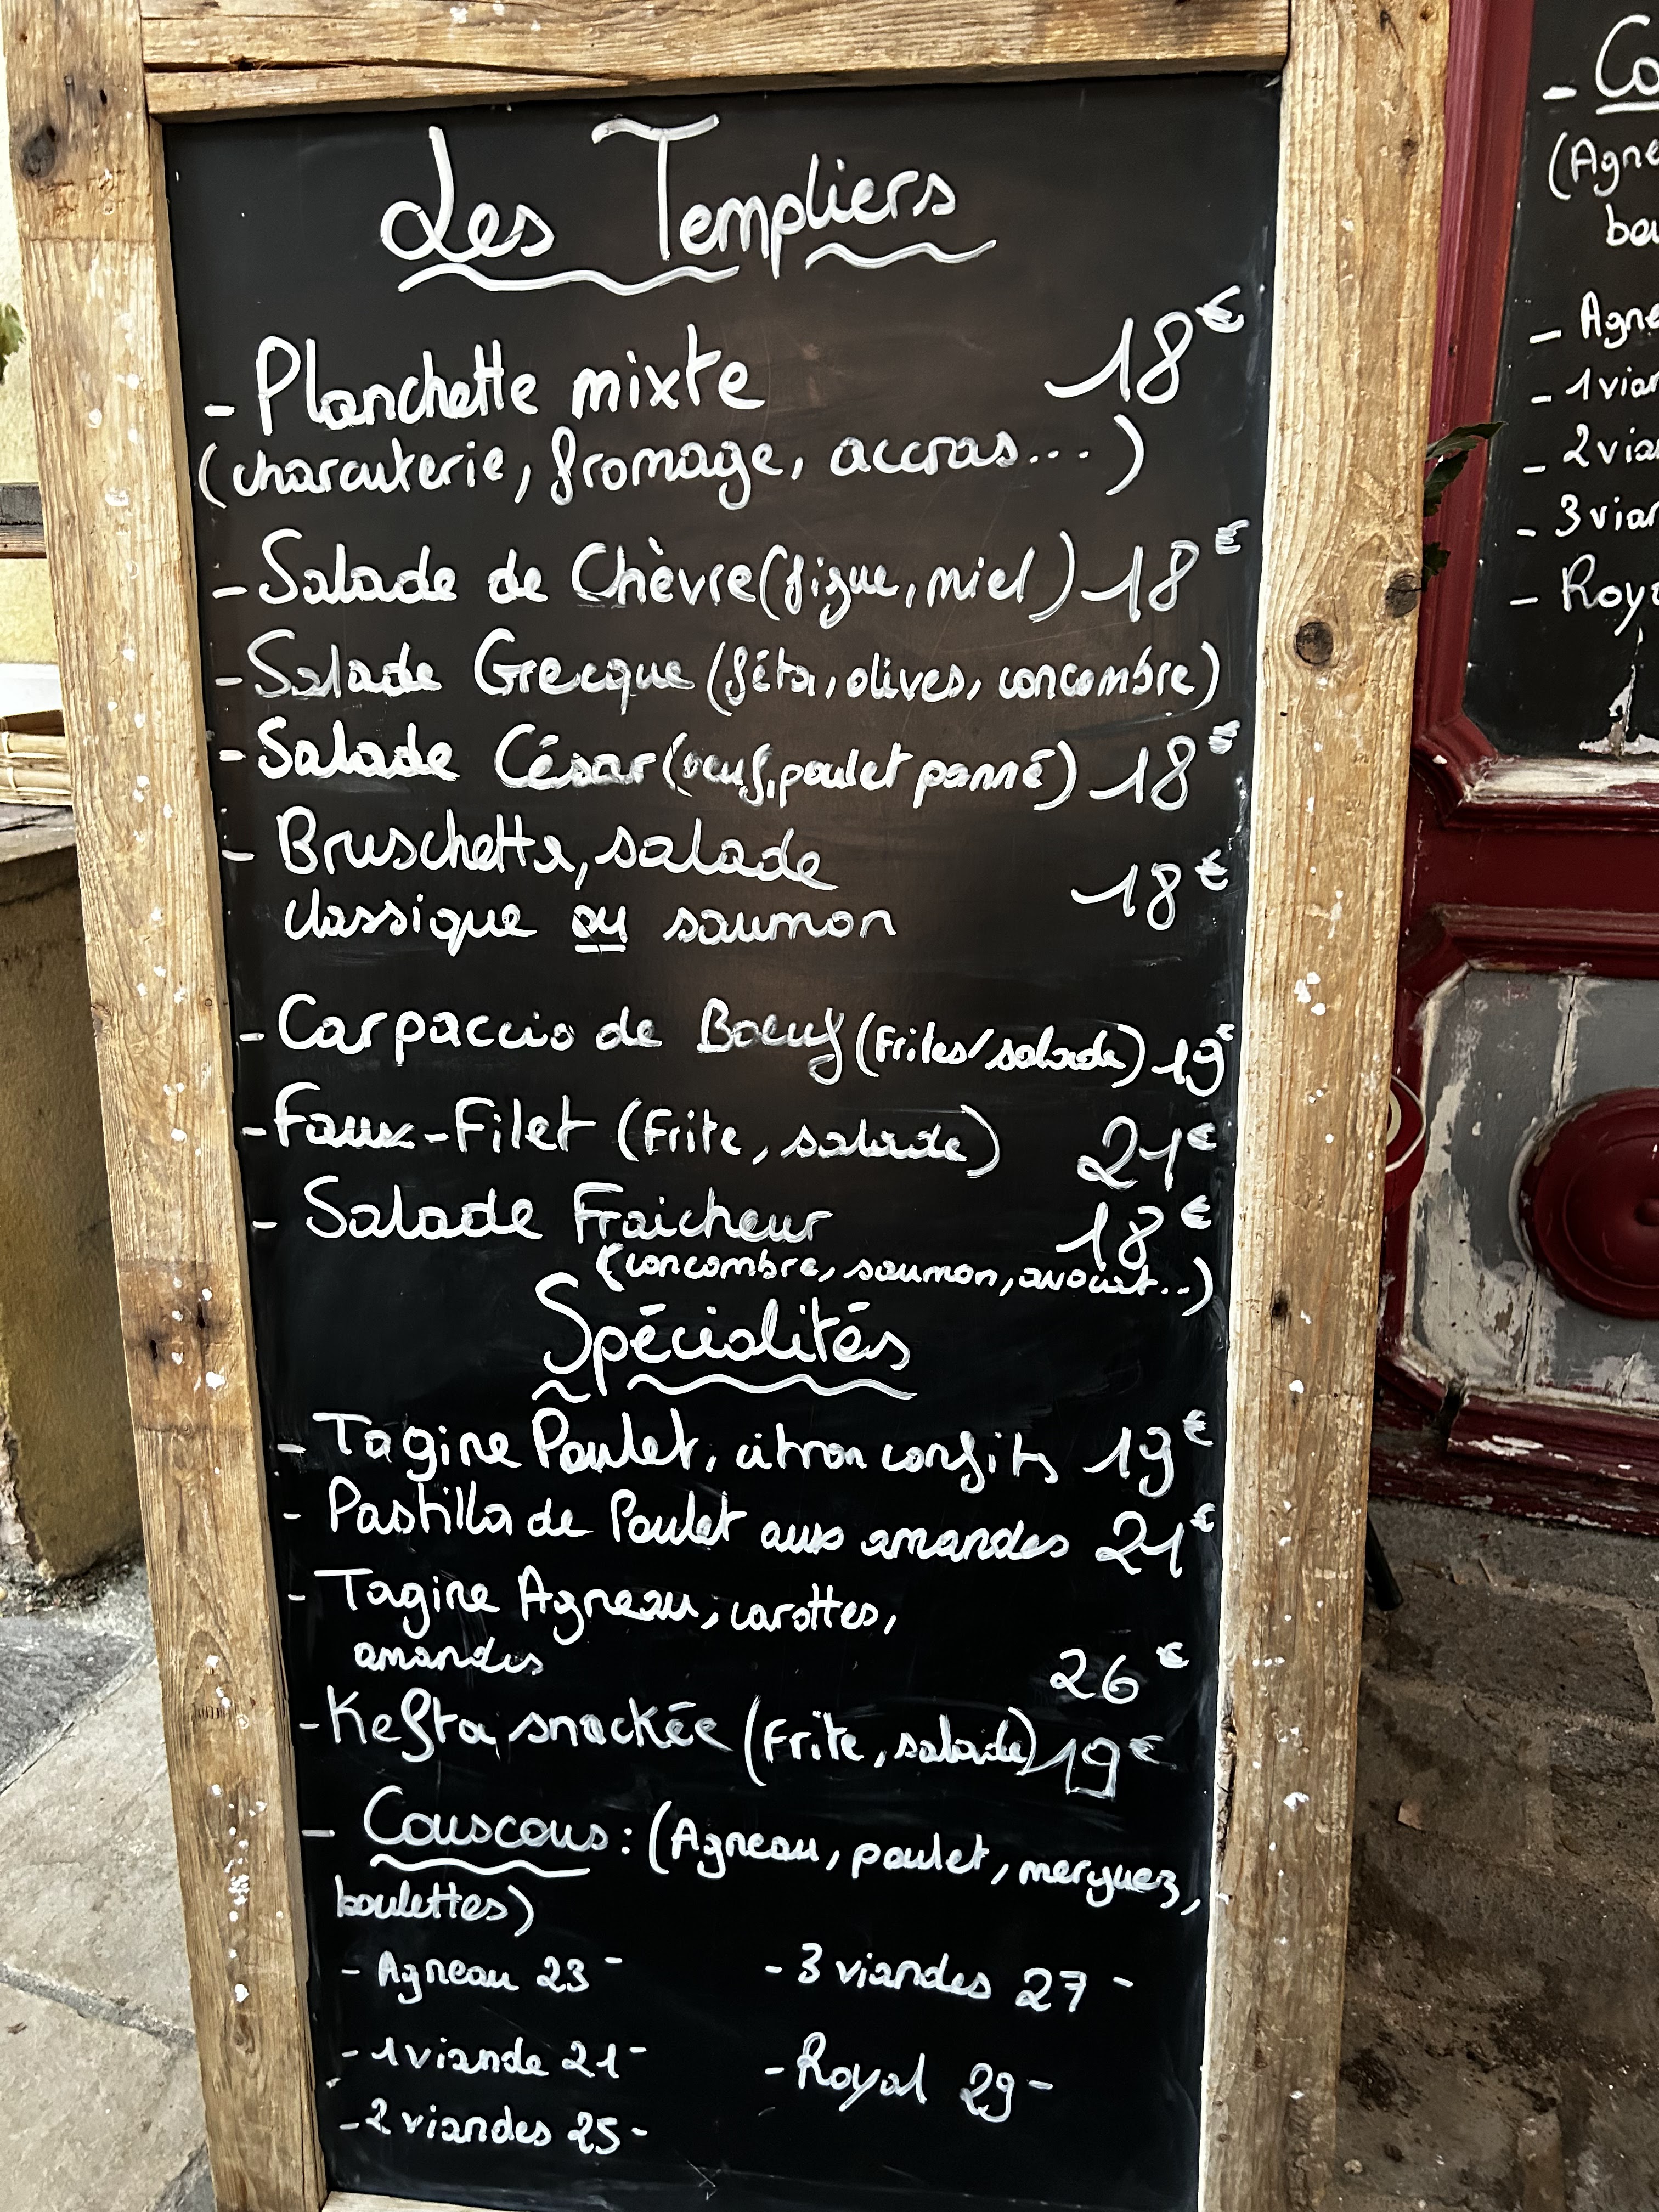 Les Templiers
- Planchette mixte 18€
(charcuterie, fromage, accras...)
- Salade de Chèvre (figue, miel) 18€
- Salade Grecque (féta, olives, concombre)
- Salade César (oeuf, poulet panné) 18€
- Bruschetta, salade
classique ou saumon 18€
- Carpaccio de Boeuf (Frites/salade) 19€
- Faux-Filet (Frite, salade) 21€
- Salade Fraicheur 18€
(concombre, saumon, avocat...)
Spécialités
- Tagine Poulet, citron confits 19€
- Pastilla de Poulet aux amandes 21€
- Tagine Agneau, carottes,
amandes 26€
- Kefta snackée (Frite, salade) 19€
- Couscous : (Agneau, poulet, merguez,
boulettes)
- Agneau 23-
- 3 viandes 27-
- 1 viande 21-
- Royal 29-
- 2 viandes 25-
- Co
(Agne
bou
- Agne
- 1 vian
- 2 vian
- 3 vian
- Roya